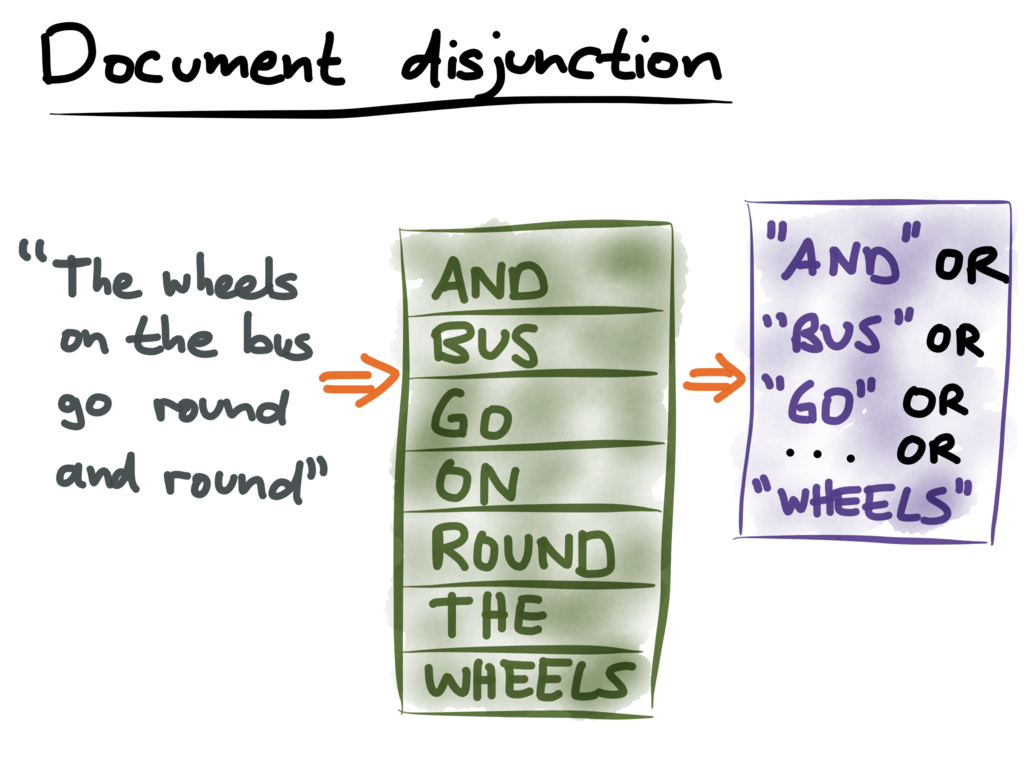 Document disjunction
“The wheels
on the bus
go round
and round”
AND
BUS
GO
ON
ROUND
THE
WHEELS
"AND" OR
"BUS" OR
"GO" OR
... OR
"WHEELS"